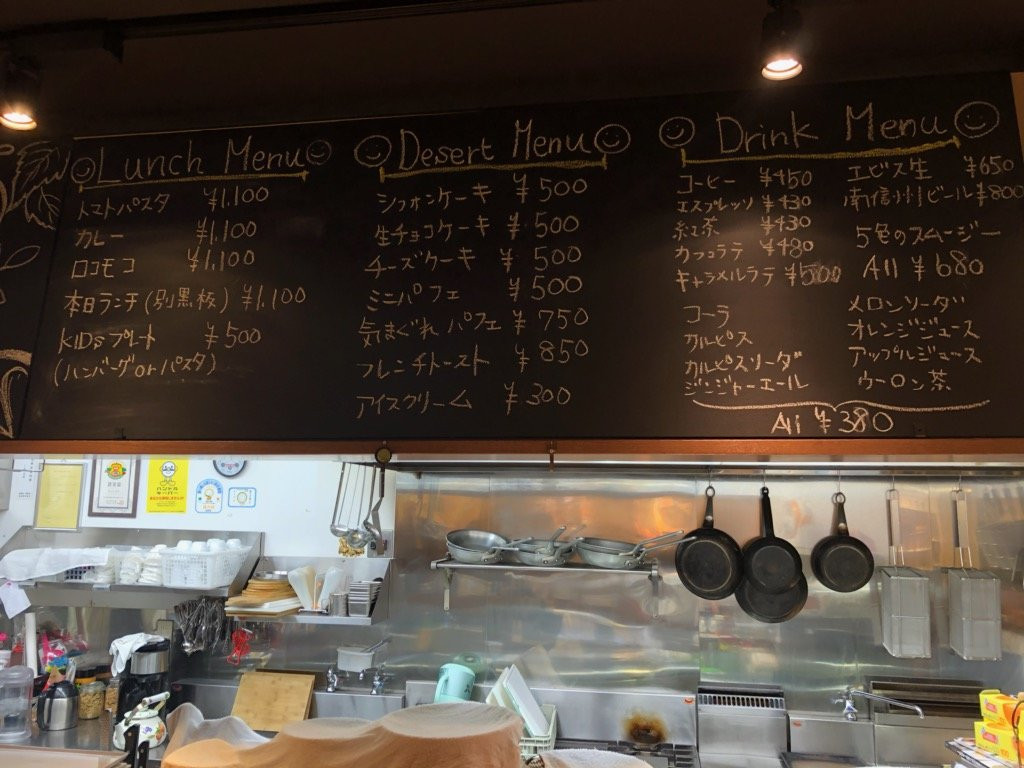 Lunch Menu
トマトパスタ ¥1.100
カレー ¥1.100
ロコモコ ¥1.100
本日ランチ(別黒板) ¥1.100
KIDSプレート ¥500
(ハンバーグorパスタ)
Desert Menu
シフォンケーキ ¥500
生チョコケーキ ¥500
チーズケーキ ¥500
ミニパフェ ¥500
気まぐれパフェ ¥750
フレンチトースト ¥850
アイスクリーム ¥300
Drink Menu
コーヒー ¥450
エスプレッソ ¥430
紅茶 ¥430
カフェラテ ¥480
キャラメルラテ ¥500
コーラ
カルピス
カルピスソーダ
ジンジャーエール
エビス生 ¥650
南信州ビール ¥800
5色のスムージー
All ¥680
メロンソーダ
オレンジジュース
アップルジュース
ウーロン茶
All ¥380
ハンドル
キーパー